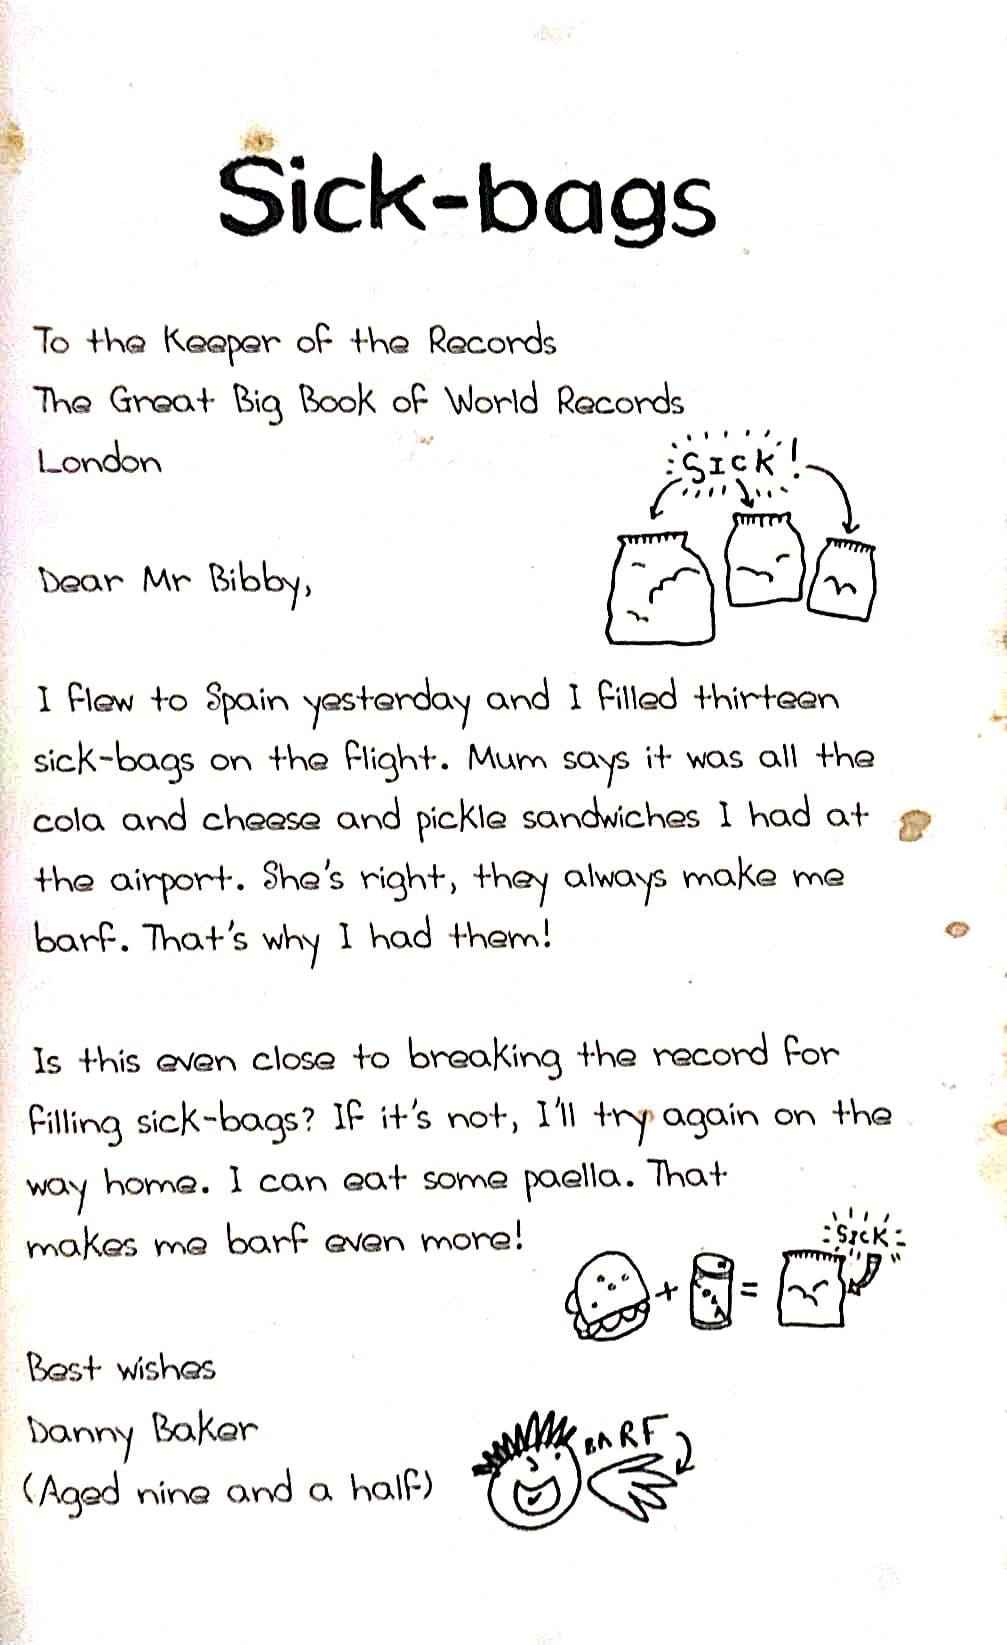 Sick-bags
To the Keeper of the Records
The Great Big Book of World Records
London
SICK!
Dear Mr Bibby,
I flew to Spain yesterday and I filled thirteen
sick-bags on the flight. Mum says it was all the
cola and cheese and pickle sandwiches I had at
the airport. She's right, they always make me
barf. That's why I had them!
Is this even close to breaking the record for
filling sick-bags? If it's not, I'll try again on the
way home. I can eat some paella. That
makes me barf even more!
SICK
+ =
Best wishes
Danny Baker
BARF
(Aged nine and a half)